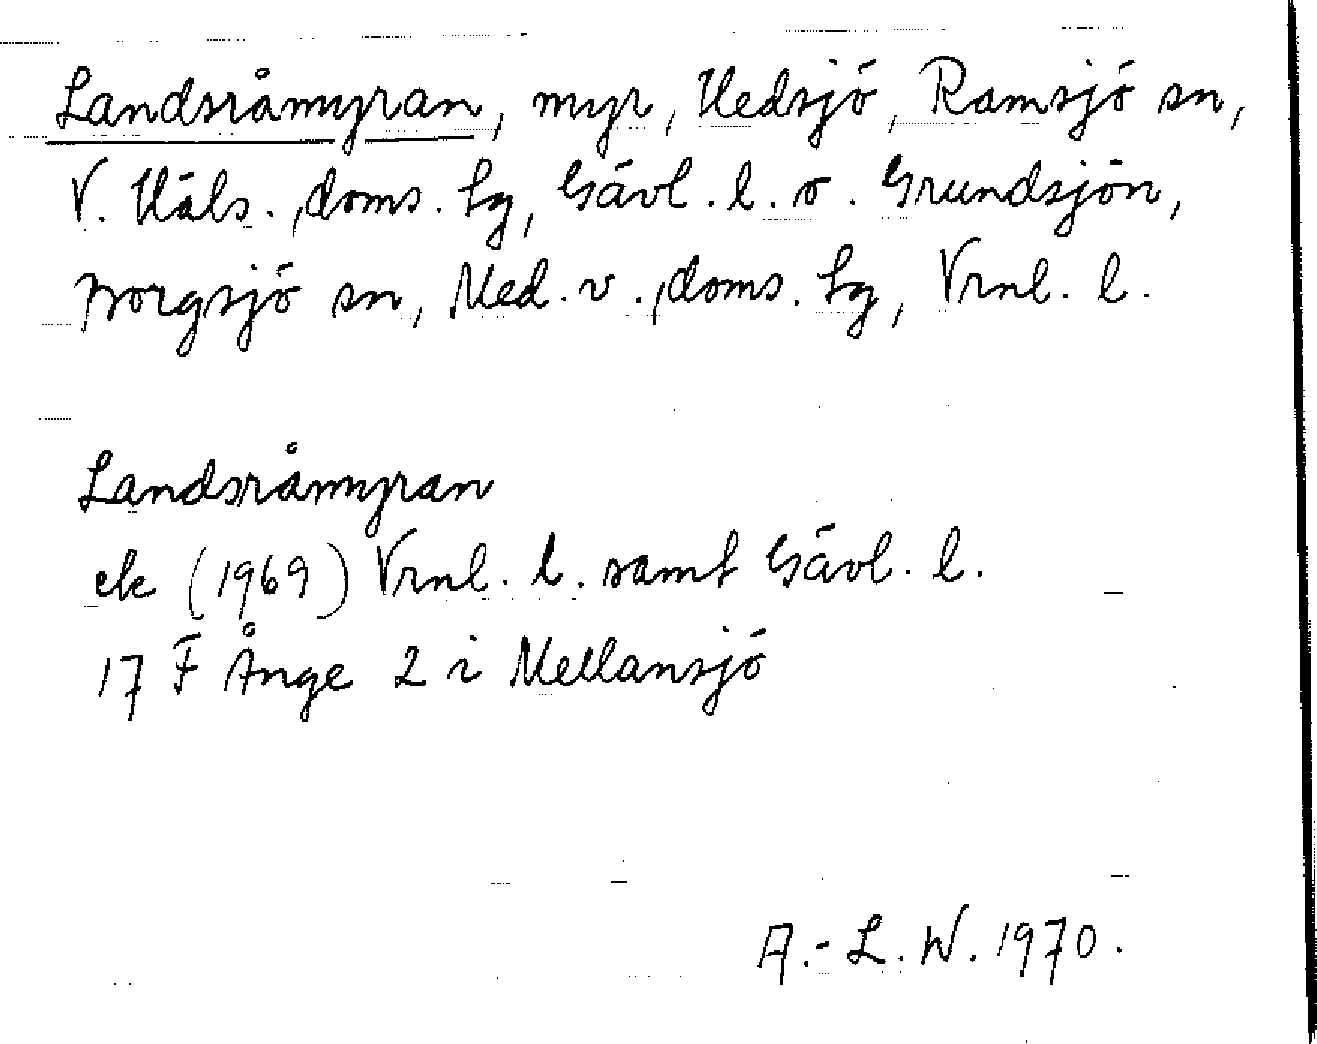 Landsråmyran, myr, Hedsjö, Ramsjö sn,
V. Häls., doms. lg, Gävl. l. o. Grundsjön,
Borgsjö sn, Med. v., doms. lg, Vrnl. l.
Landsråmyran
ek (1969) Vrnl. l. samt Gävl. l.
17 F Ånge 2 i Mellansjö
A.-L. W. 1970.